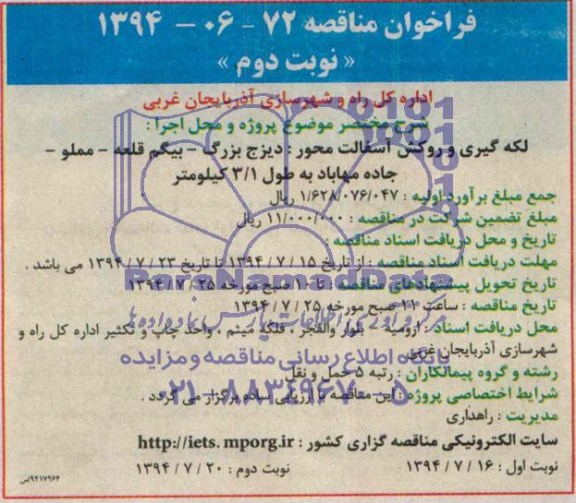 فراخوان مناقصه ۷۲ - ۰۶ - ۱۳۹۴
« نوبت دوم »
اداره کل راه و شهرسازی آذربایجان غربی
شرح مختصر موضوع پروژه و محل اجرا :
لکه گیری و روکش آسفالت محور : دیزج بزرگ - بیگم قلعه - مملو -
جاده مهاباد به طول ۳/۱ کیلومتر
جمع مبلغ برآورد اولیه : ۱/۶۲۸/۰۷۶/۰۴۷ ریال
مبلغ تضمین شرکت در مناقصه : ۱۱/۰۰۰/۰۰۰ ریال
تاریخ و محل دریافت اسناد مناقصه :
مهلت دریافت اسناد مناقصه : از تاریخ ۱۵ / ۷ / ۱۳۹۴ تا تاریخ ۲۳ / ۷ / ۱۳۹۴ می باشد .
تاریخ تحویل پیشنهادهای مناقصه : تا ۱۰ صبح مورخه ۲۵ / ۷ / ۱۳۹۴
تاریخ مناقصه : ساعت ۱۱ صبح مورخه ۲۵ / ۷ / ۱۳۹۴
محل دریافت اسناد : ارومیه - بلوار والفجر ، فلکه میثم ، واحد چاپ و تکثیر اداره کل راه و
شهرسازی آذربایجان غربی
رشته و گروه پیمانکاران : رتبه ۵ حمل و نقل
شرایط اختصاصی پروژه : این مناقصه با ارزیابی ساده برگزار می گردد .
مدیریت : راهداری
سایت الکترونیکی مناقصه گزاری کشور : http://iets.mporg.ir
نوبت اول : ۱۶ / ۷ / ۱۳۹۴ نوبت دوم : ۲۰ / ۷ / ۱۳۹۴
۹۴۱۷۹۶۴/س
ParsNamadData
پایگاه اطلاع رسانی مناقصه و مزایده
۰۲۱-۸۸۳۴۹۶۷۰-۵